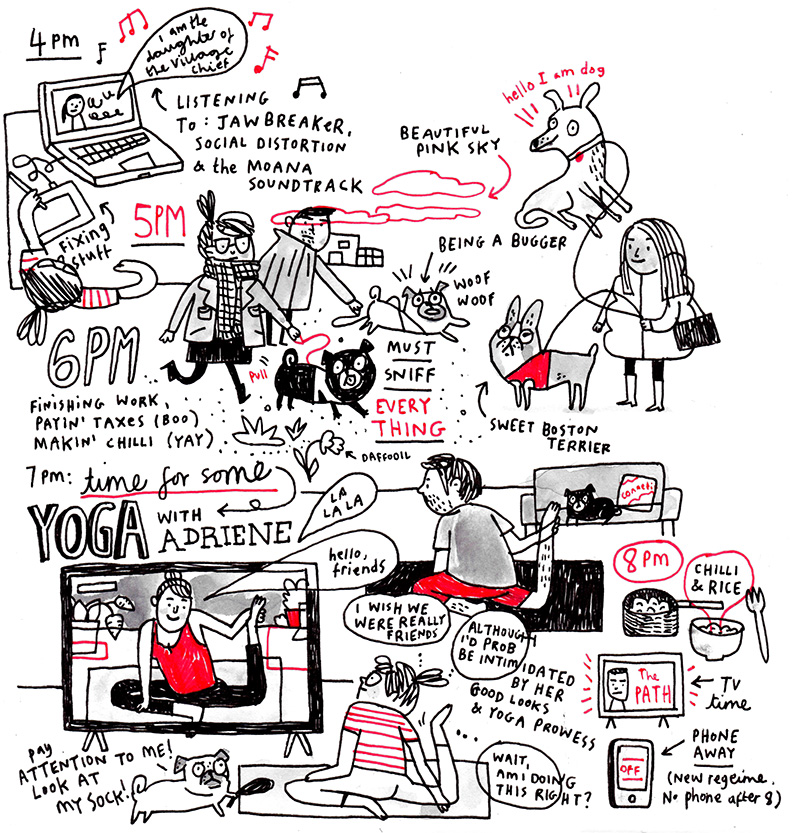 4PM
I am the
daughter of
the village
chief
LISTENING
TO: JAWBREAKER,
SOCIAL DISTORTION
& the MOANA
SOUNDTRACK
Fixing
stuff
BEAUTIFUL
PINK SKY
hello I am dog
5PM
BEING A BUGGER
WOOF
WOOF
Pull
MUST
SNIFF
EVERY
THING
SWEET BOSTON
TERRIER
6PM
FINISHING WORK,
PAYIN' TAXES (BOO)
MAKIN' CHILLI (YAY)
DAFFODIL
7PM: time for some
YOGA WITH
ADRIENE
LA
LA LA
hello,
friends
I WISH WE
WERE REALLY
FRIENDS
ALTHOUGH
I'D PROB
BE INTIMIDATED
BY HER
GOOD LOOKS
& YOGA PROWESS
...
WAIT,
AM I DOING
THIS RIGHT?
Pay
ATTENTION TO ME!
LOOK AT
MY SOCK!
8PM
CHILLI
& RICE
The
PATH
TV
time
OFF
PHONE
AWAY
(New regeime.
No phone after 8)